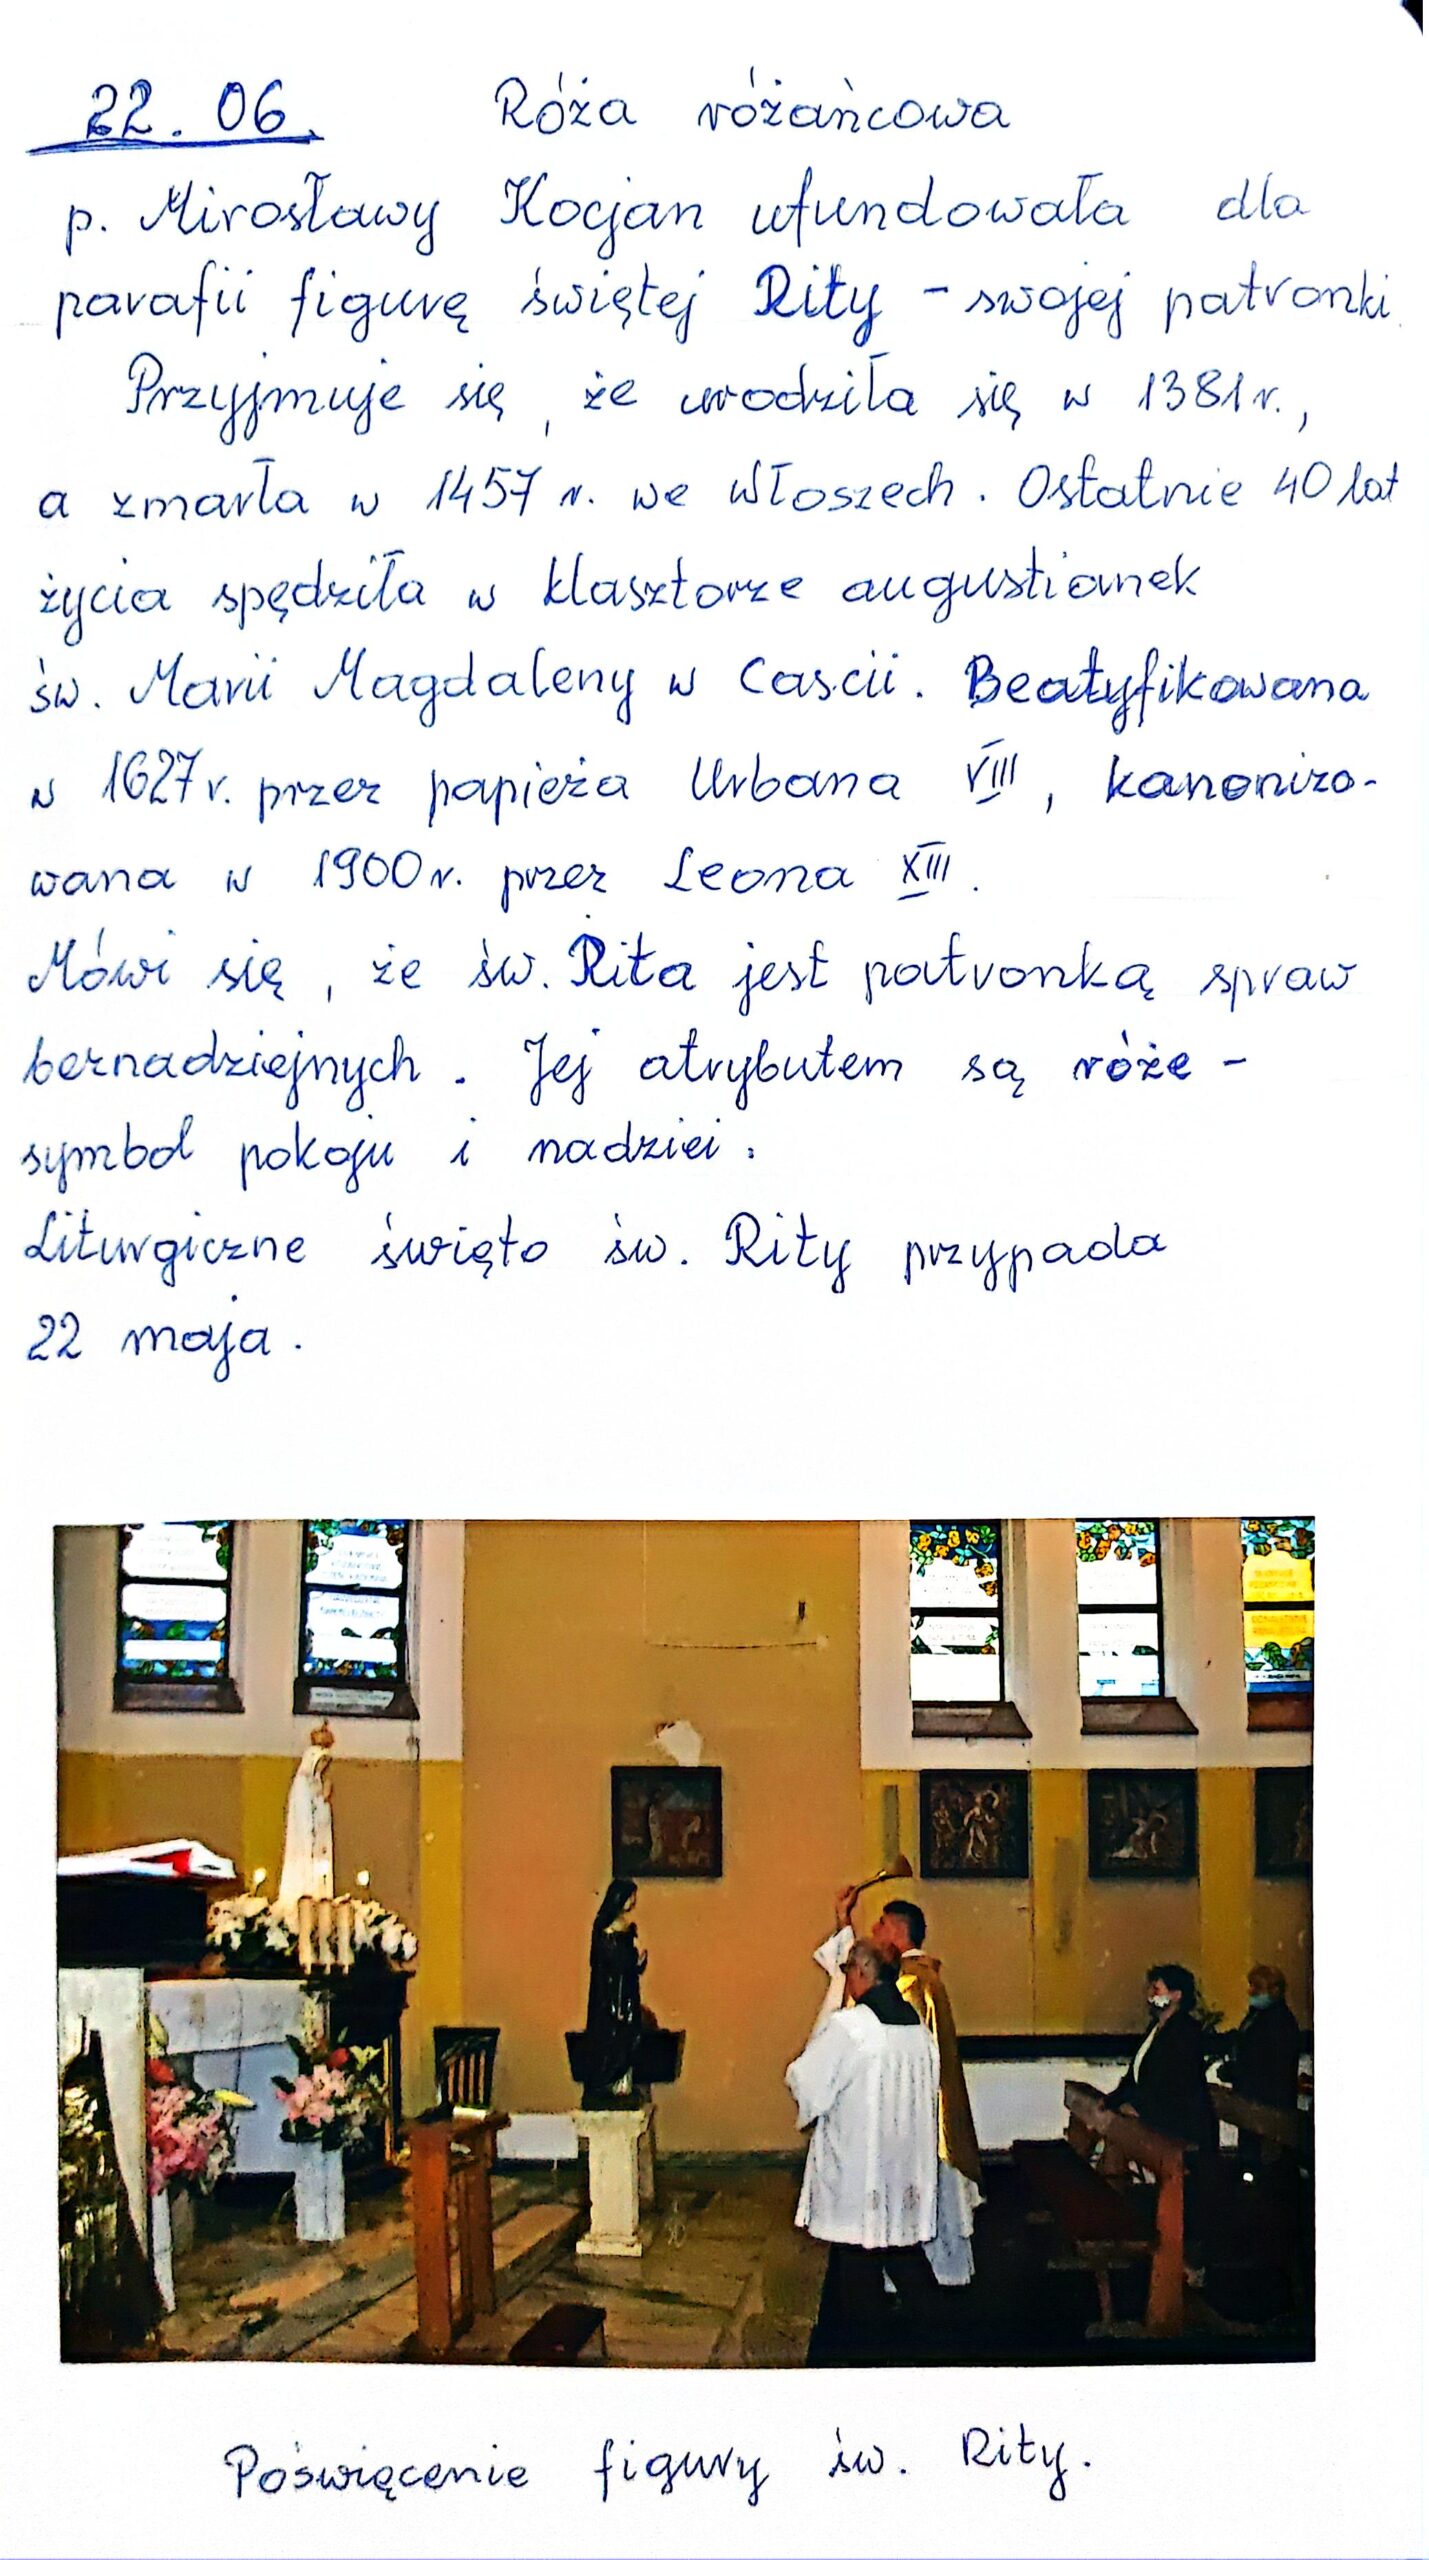 22.06. Róża różańcowa
p. Mirosławy Kocjan ufundowała dla
parafii figurę świętej Rity - swojej patronki.
Przyjmuje się, że urodziła się w 1381 r.,
a zmarła w 1457 r. we Włoszech. Ostatnie 40 lat
życia spędziła w klasztorze augustianek
św. Marii Magdaleny w Cascii. Beatyfikowana
w 1627 r. przez papieża Urbana VIII, kanonizo-
wana w 1900 r. przez Leona XIII.
Mówi się, że św. Rita jest patronką spraw
beznadziejnych. Jej atrybutem są róże -
symbol pokoju i nadziei.
Liturgiczne święto św. Rity przypada
22 maja.
Poświęcenie figury św. Rity.